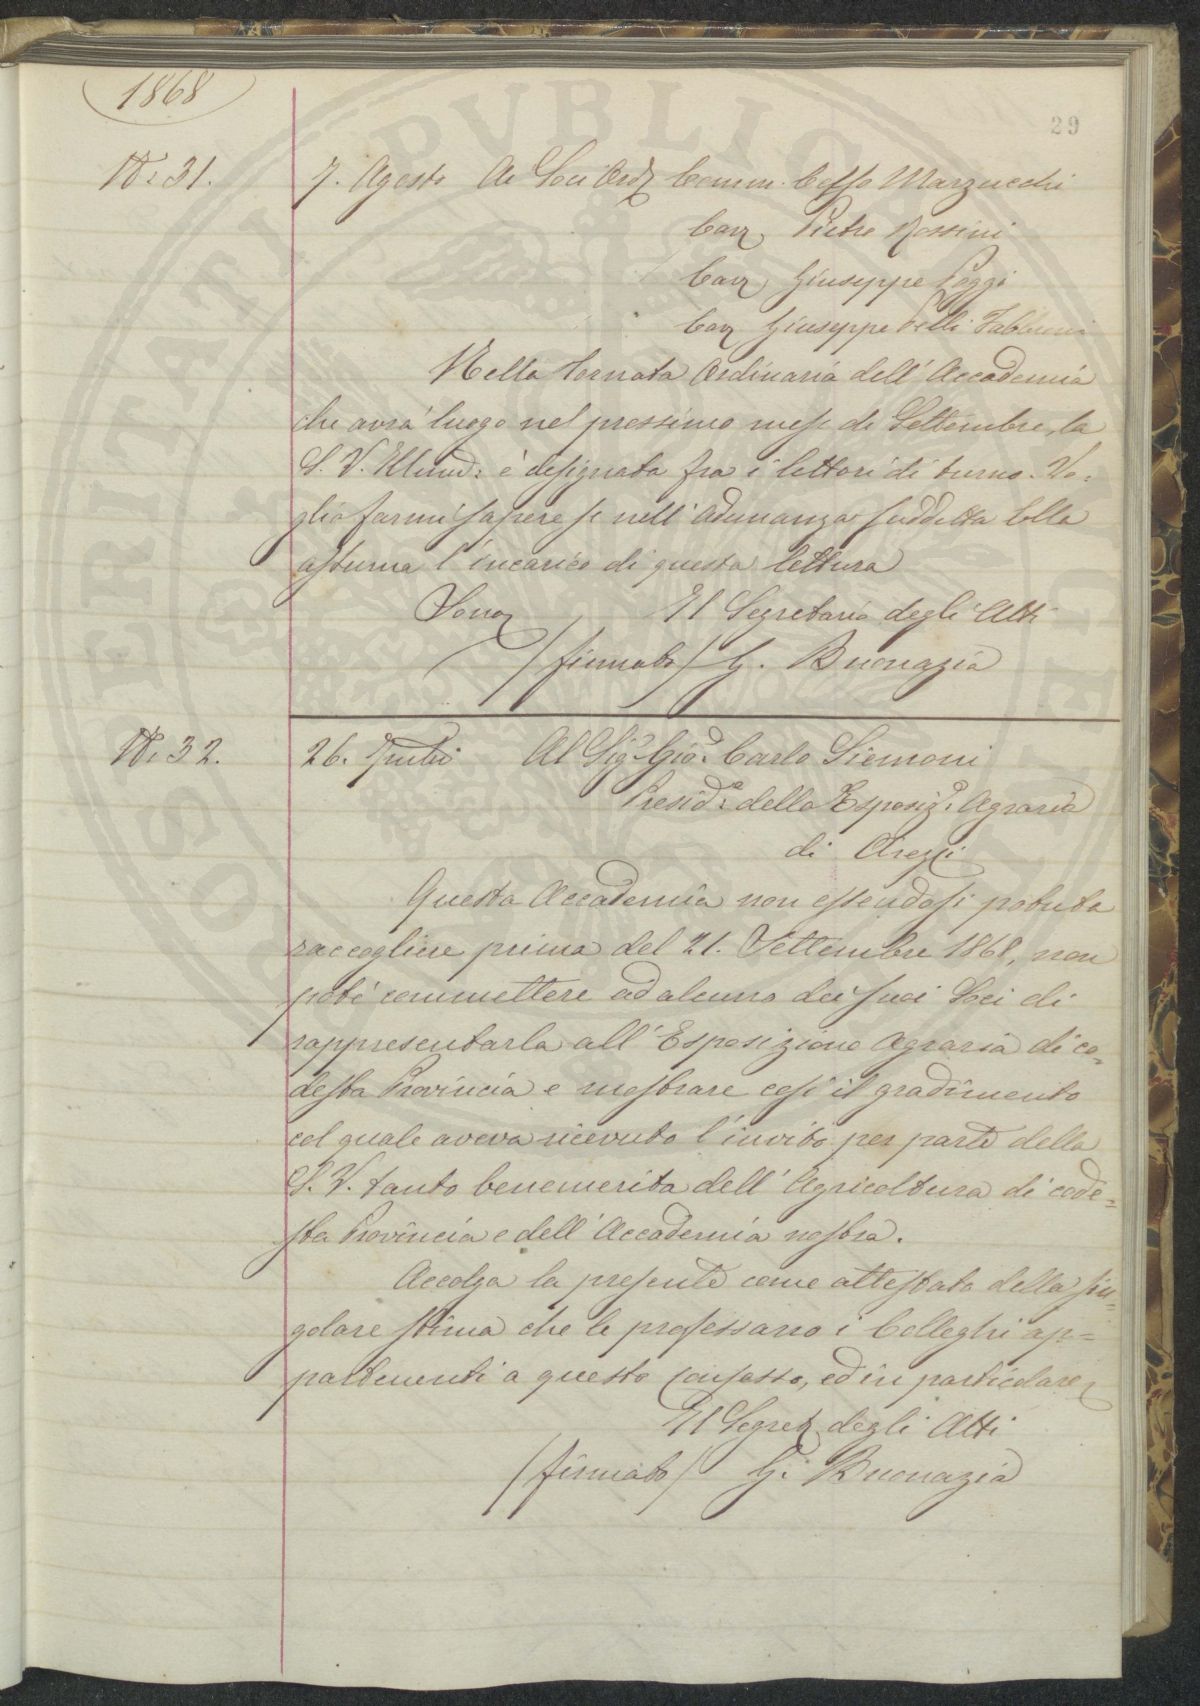 1868
29
N. 31.
7. Agosto Ai Soci Ord. Comm. Celso Marzucchi
Cav. Pietro Rossini
Cav. Giuseppe Poggi
Cav. Giuseppe Pelli Fabbroni
Nella tornata ordinaria dell' Accademia
che avrà luogo nel prossimo mese di Settembre, la
S. V. Illma: è designata fra i lettori di turno. Vo=
glia farmi sapere se nell' adunanza suddetta Ella
assuma l'incarico di questa lettura
Sono Il Segretario degli Atti
/firmato/ G. Buonazia
N. 32.
26. Al Sig. Gio. Carlo Siemoni
Presid. della Esposiz. Agraria
di Arezzo
Questa Accademia non essendosi potuta
raccogliere prima del 21. Settembre 1868, non
poté commettere ad alcuno dei suoi Soci di
rappresentarla all' Esposizione Agraria di co=
desta Provincia e mostrare così il gradimento
col quale aveva ricevuto l'invito per parte della
S. V. tanto benemerita dell' Agricoltura di code=
sta Provincia e dell' Accademia nostra.
Accolga la presente come attestato della sin=
golare stima che le professano i Colleghi ap=
partenenti a questo consesso, ed in particolare
Il Segret. degli Atti
/firmato/ G. Buonazia